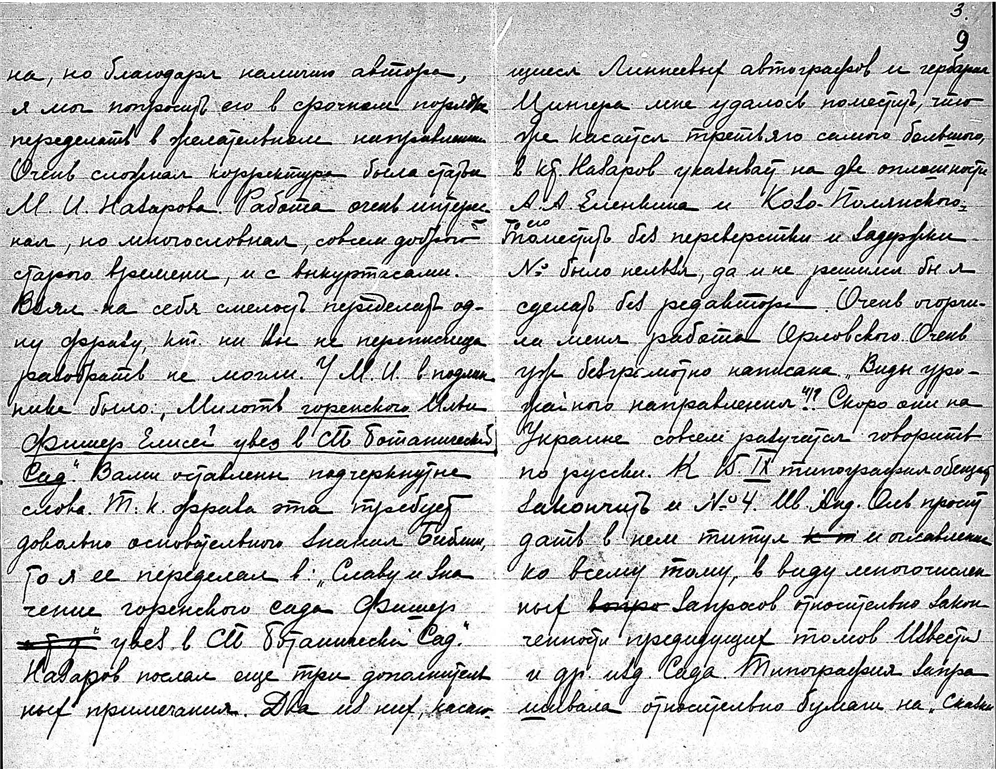 3.
9
на, но благодаря наличию автора,
я мог попросить его в срочном порядке
переделать в желательном направлении.
Очень сложная корректура была статьи
М. И. Назарова. Работа очень интерес-
ная, но многословная, совсем доброго
старого времени, и с выкуртасами.
Взял на себя смелость переделать од-
ну фразу, кт. ни Вы не переписчица
разобрать не могли. У М. И. в подлин
нике было: „Милоть горенского Ильи
Фишер Елисей увез в СПб ботанический
Сад". Вами оставлены подчеркнутые
слова. Т. к. фраза эта требует
довольно основательного знания Библии,
то я ее переделал в: „Славу и зна
чение горенского сада Фишер
увез в СПб ботанический Сад".
Назаров послал еще три дополнитель
ных примечания. Два из них, касаю-
щиеся Линнеевых автографов и гербария
Цингера мне удалось поместить, что
же касается третьяго самого большого,
в кт. Назаров указывает на две оплошности
А. А. Еленкина и Козо-Полянского-
его поместить без переверстки и задержки
№ было нельзя, да и не решился бы я
сделать без редактора. Очень огорчи-
ла меня работа Орловского. Очень
уж безграмотно написана „Виды уро-
жайного направления"!? Скоро они на
Украине совсем разучатся говорить
по русски. К 15. IX типография обещает
закончить и № 4. Ив. Анд. Олв просит
дать в нем титул и оглавление
ко всему тому, в виду многочислен
ных запросов относительно закон
ченности предидущих томов Извести
и др. изд. Сада. Типография запра
шивала относительно бумаги на „Сказки